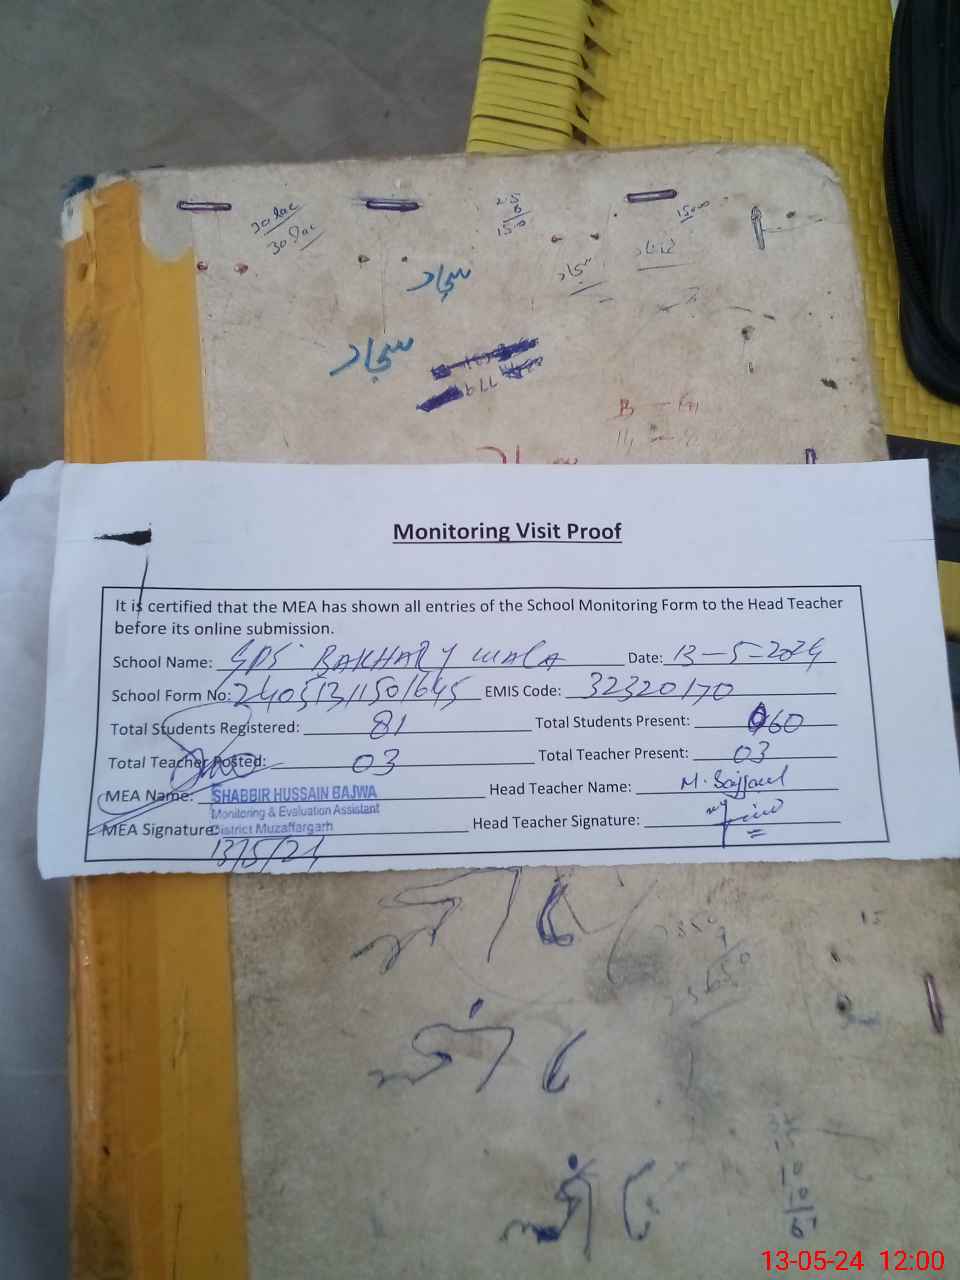 30 lac
30 lac
25
6
150
1500
سجاد
سجاد
سجاد
B — G
Monitoring Visit Proof
It is certified that the MEA has shown all entries of the School Monitoring Form to the Head Teacher
before its online submission.
School Name: GPS BAKHARY WALA Date: 13-5-2024
School Form No: 24051311501645 EMIS Code: 32320170
Total Students Registered: 81 Total Students Present: 60
Total Teacher Posted: 03 Total Teacher Present: 03
MEA Name: SHABBIR HUSSAIN BAJWA Head Teacher Name: M. Sajjad
Monitoring & Evaluation Assistant
MEA Signature: District Muzaffargarh Head Teacher Signature:
13/5/24
15
13-05-24 12:00